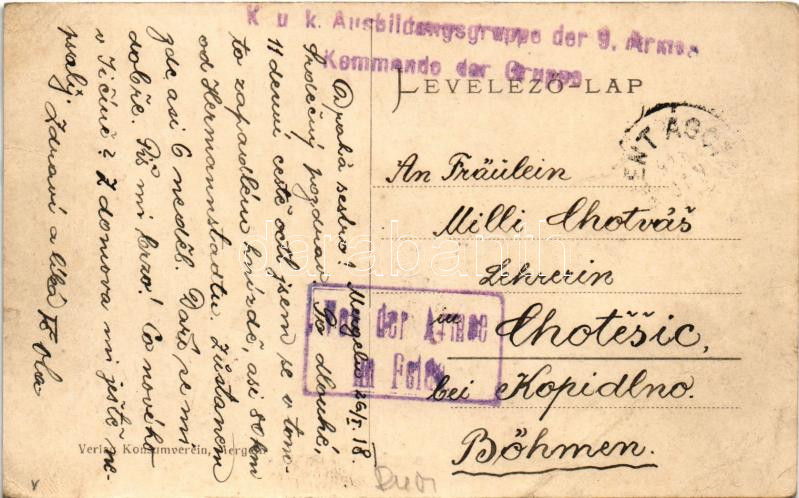 K. u. k. Ausbildungsgruppe der 9. Armee
Kommando der Gruppe
LEVELEZŐ-LAP
An Fräulein
Milli Chotváš
Lehrerin
in Chotěšic,
bei Kopidlno.
Böhmen.
Von der Armee
im Felde
Mergeln 26/I. 18.
Drahá sestro!
Srdečný pozdrav! Po dlouhé,
11 denní cestě octl jsem se v tom-
to zapadlém hnízdě, asi 80 km
od Hermannstadtu. Zůstanem
zde asi 6 neděl. Daří se mi
dobře. Piš mi brzo! Co nového
v Jičíně? Z domova mi ještě ne-
psalj. Zdraví a líbá Tě
Verlag Konsumverein, Mergeln
darabanth